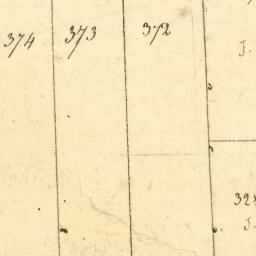 374 373 372
J.
J.